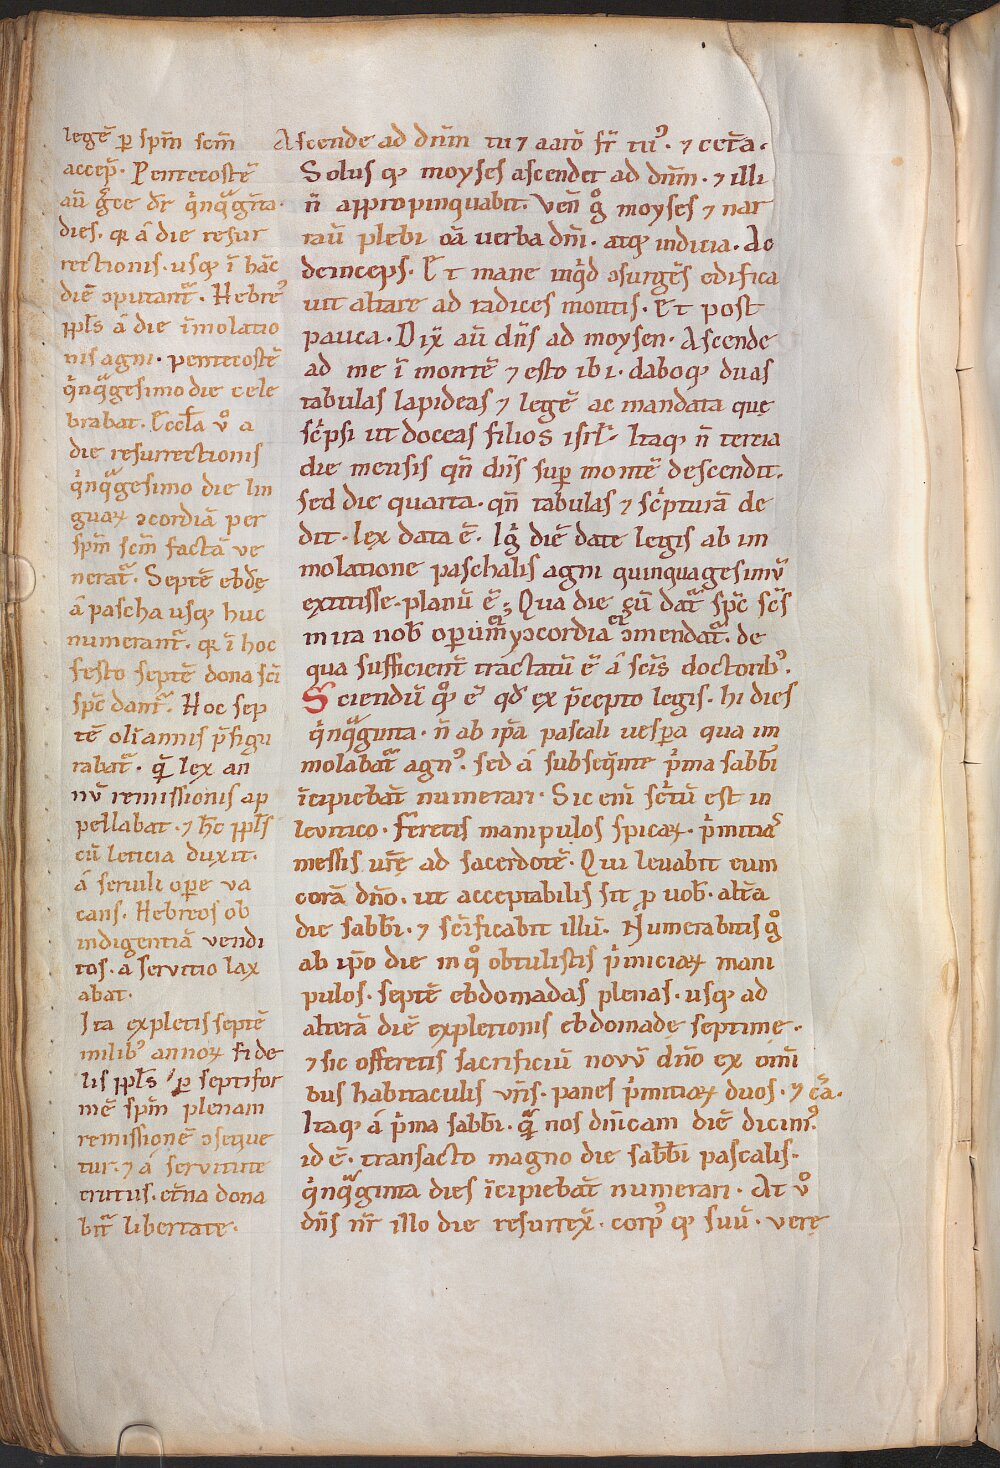 legē ꝑ spm̄ scm̄
accep̄. Pentecostē
aū g̅ce dr̄ qͥnqᷓgīta.
dies. qꝛ ā die resur
rectionis. usqꝫ ī hāc
diē ɔputant᷑. Hebreꝰ
ppl̄s ā die īmolatio
nis agni. pentecostē
qͥnqᷓgesimo die cele
brabat. Eccl̄a uͦ a
die resurrectionis
qͥnqᷓgesimo die lin
guaꝝ ɔcordiā per
spm̄ scm̄ factā ue
nerat᷑. Septē ebdę
ā pascha usqꝫ huc
numerant᷑. qꝛ ī hoc
festo septē dona sc̄i
sp̄c dant᷑. Hoc sep
tē oli annis p̄figu
rabat᷑. qᷓ lex an
nū remissionis ap
pellabat. ⁊ hc̄ ppl̄s
cū leticia duxit.
ā seruili oꝑe ua
cans. Hebreos ob
indigentiā uendi
tos. ā seruitio lax
abat.
Ita expletis septē
milibꝰ annoꝝ fide
lis ppl̄s ꝑ septifor
mē spm̄ plenam
remissionē ɔseque
tur. ⁊ ā seruitute
erutus. et̄na dona
bit᷑ libertate.
Ascende ad dn̄m tu ⁊ aarō fr̄ tuꝰ. ⁊ cet̄a.
Solus qꝫ moyses ascendet ad dn̄m. ⁊ illi
n̄ appropinquabit. Ven̄ gͦ moyses ⁊ nar
raū plebi oā uerba dn̄i. atqꝫ iudicia. Ac
deinceps. Et mane inqͥd ɔsurgēs edifica
uit altare ad radices montis. Et post
pauca. Dix̄ aū dn̄s ad moysen. Ascende
ad me ī montē ⁊ esto ibi. daboqꝫ duas
tabulas lapideas ⁊ legē ac mandata quę
scͥpsi ut doceas filios isrl̄. Itaqꝫ n̄ tercia
die mensis qn̄ dn̄s suꝑ montē descendit.
sed die quarta. qn̄ tabulas ⁊ scͥpturā de
dit. lex data ē. Igͥ diē date legis ab im
molatione paschalis agni quinquagesimū
extitisse. planū ē; Qua die cū dat᷑ sp̄c sc̄s
mira nob̄ operum ɔcordia et ɔmendat᷑. de
qua sufficient᷑ tractatū ē ā sc̄is doctoribꝰ.
Sciendū qͦꝫ ē qd̄ ex p̄cepto legis. hi dies
qͥnqᷓginta. n̄ ab ip̄a pascali uesꝑa qua im
molabat᷑ agnꝰ. sed ā subseqͣnte pͥma sabb̄i
īcipiebāt numerari. Sic eni sc̄tū est in
leuitico. Feretis manipulos spicaꝝ. pͥmitias
messis ur̄ę ad sacerdotē. Qui leuabit eum
corā dn̄o. ut acceptabilis sit ꝓ uob̄. alt̄a
die sabb̄i. ⁊ sc̄ificabit illū. Numerabitis gͦ
ab ip̄o die in qͦ obtulistis pͥmiciaꝝ mani
pulos. septē ebdomadas plenas. usqꝫ ad
alterā diē expletionis ebdomadę septimę.
⁊ sic offeretis sacrificiū nouū dn̄o ex om̄i
bus habitaculis ur̄is. panes pͥmitiaꝝ duos. ⁊ c̄a.
Itaqꝫ ā pͥma sabb̄i. qᷓ nos dn̄icam diē dicimꝰ.
id ē. transacto magno die sabb̄i pascalis.
qͥnqᷓginta dies īcipiebāt numerari. At uͦ
dn̄s nr̄ illo die resurrex̄. corpꝰ qꝫ suū. uere